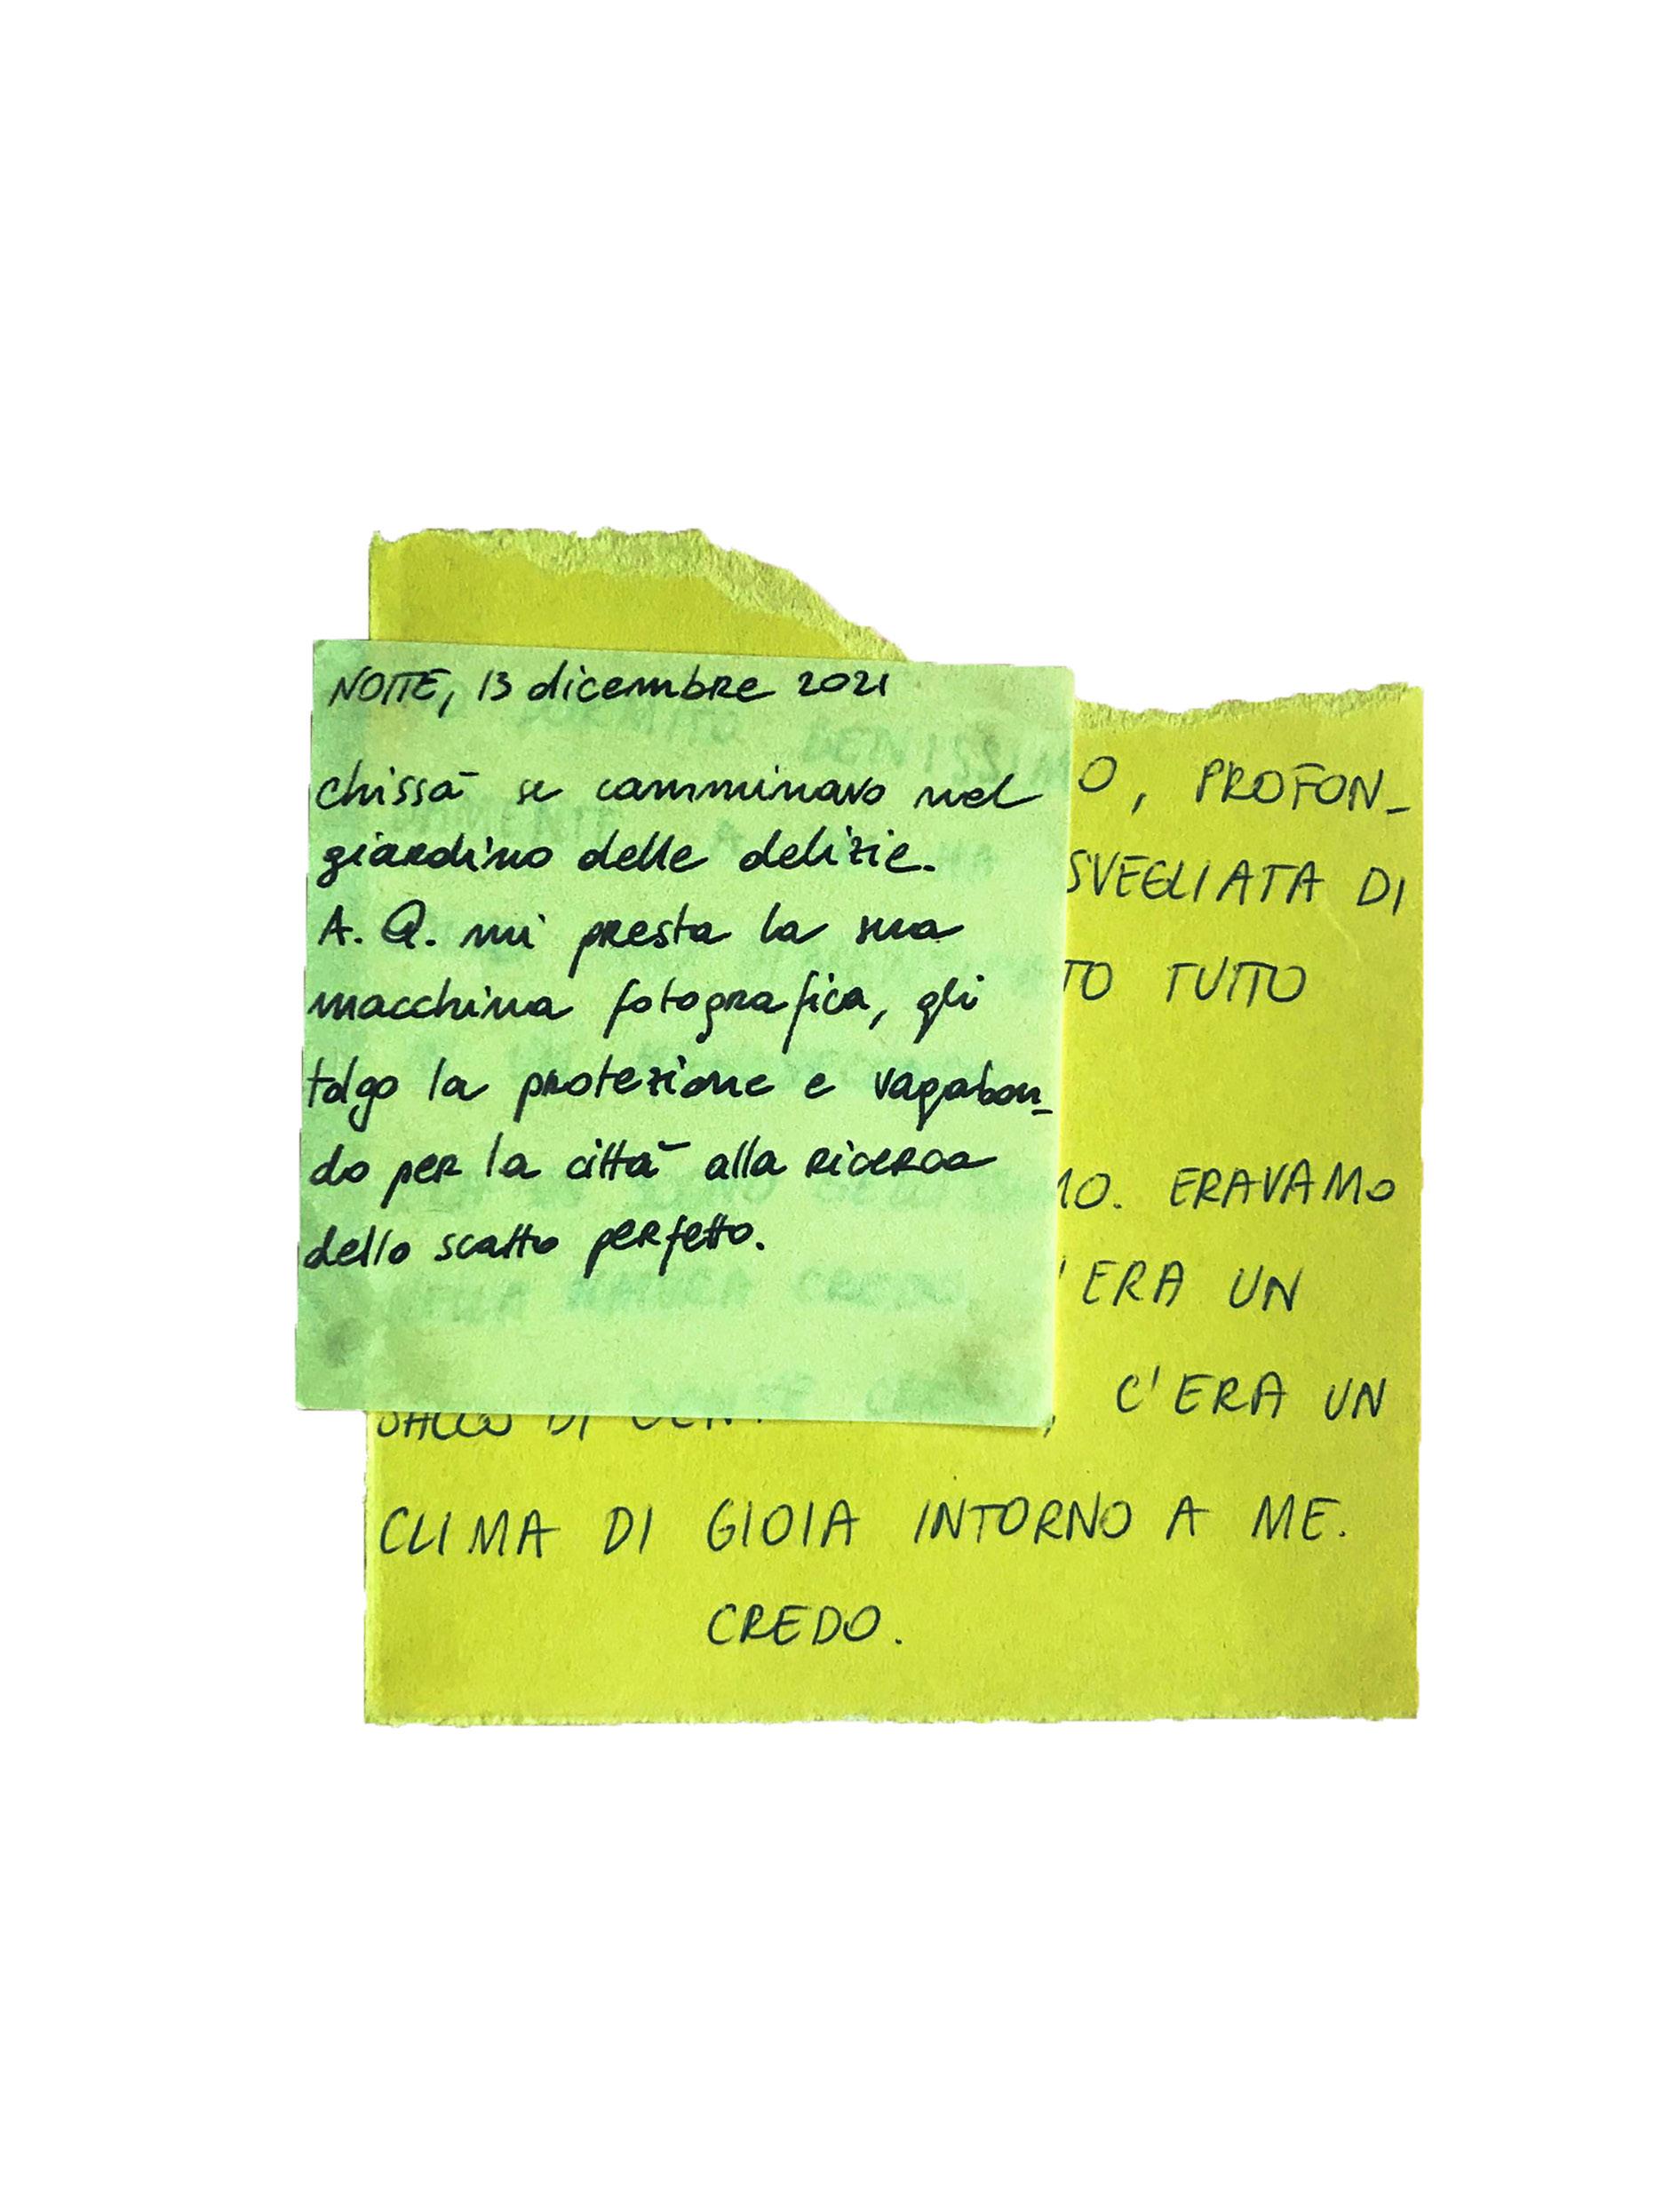 NOTTE, 13 dicembre 2021
chissà se camminavo nel
giardino delle delizie.
A. Q. mi presta la sua
macchina fotografica, gli
tolgo la protezione e vagabon_
do per la città alla ricerca
dello scatto perfetto.
DORMITO BENISSIMO, PROFON_
DAMENTE SVEGLIATA DI
TO TUTTO
MO. ERAVAMO
NELLA NATURA CREDO, C'ERA UN
SACCO DI GENTE , C'ERA UN
CLIMA DI GIOIA INTORNO A ME.
CREDO.